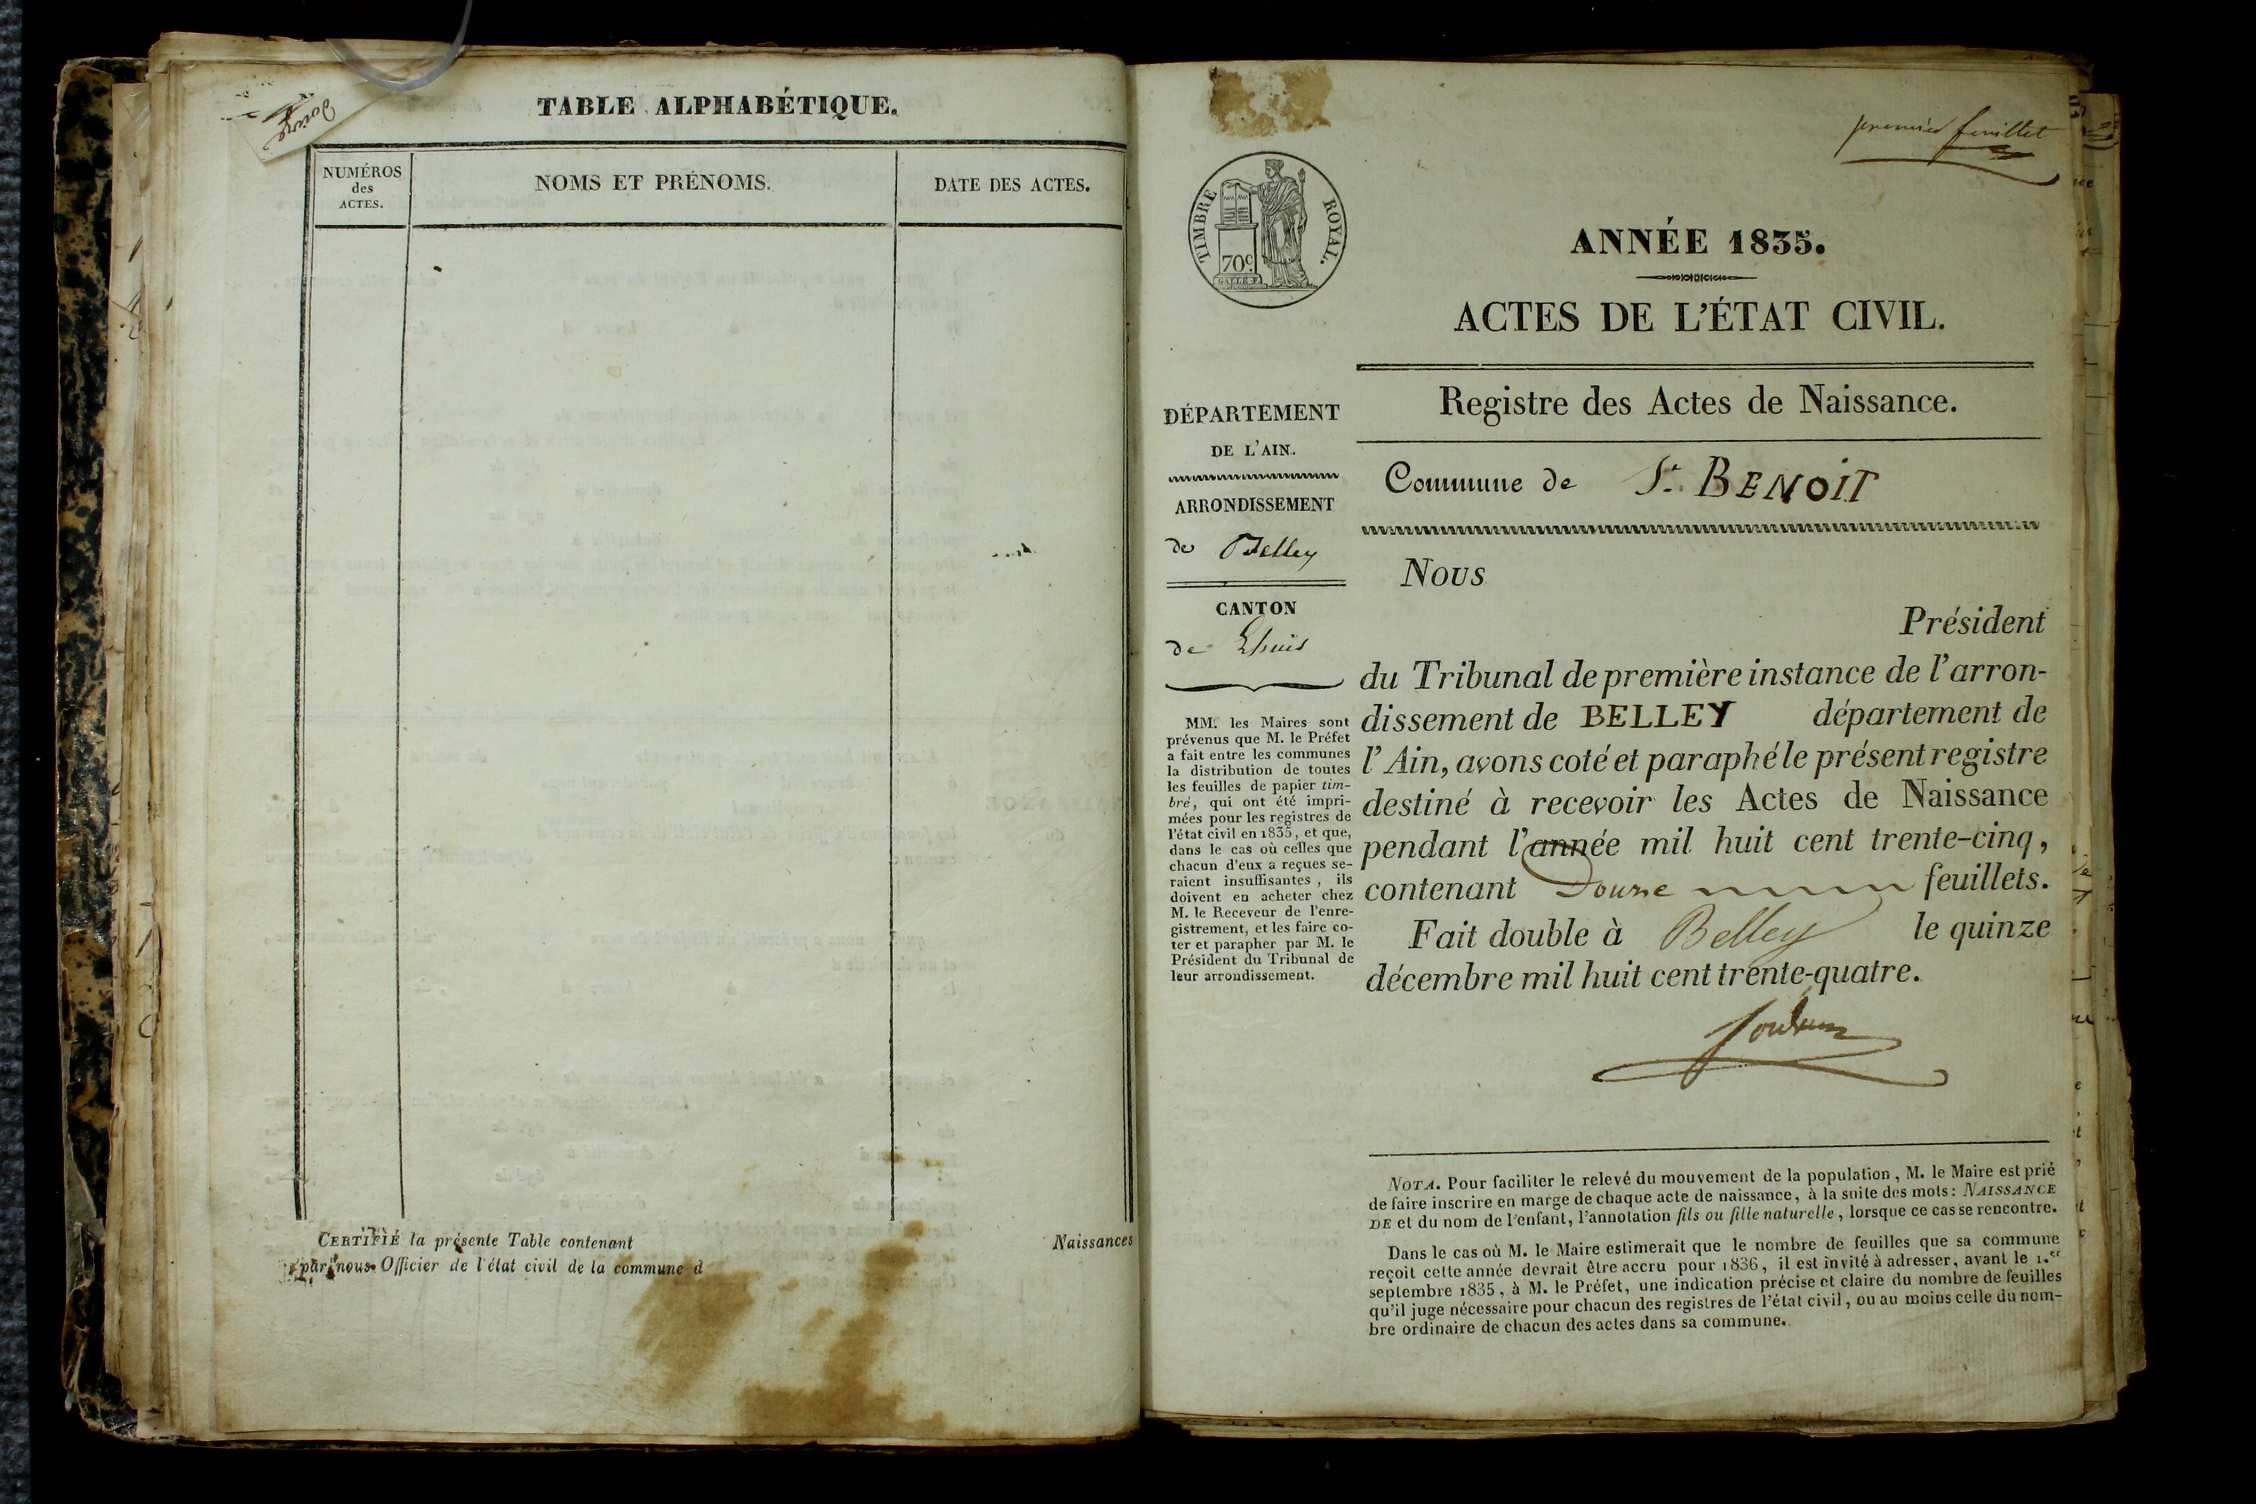 TABLE ALPHABÉTIQUE.
NUMÉROS
des
ACTES.
NOMS ET PRÉNOMS.
DATE DES ACTES.
CERTIFIÉ la présente Table contenant
Naissances
par nous Officier de l'état civil de la commune d
premier feuillet
TIMBRE ROYAL.
70c.
ANNÉE 1835.
ACTES DE L'ÉTAT CIVIL.
DÉPARTEMENT
DE L'AIN.
ARRONDISSEMENT
de Belley
CANTON
de Lhuis
MM. les Maires sont
prévenus que M. le Préfet
a fait entre les communes
la distribution de toutes
les feuilles de papier tim-
bré, qui ont été impri-
mées pour les registres de
l'état civil en 1835, et que,
dans le cas où celles que
chacun d'eux a reçues se-
raient insuffisantes, ils
doivent en acheter chez
M. le Receveur de l'enre-
gistrement, et les faire co-
ter et parapher par M. le
Président du Tribunal de
leur arrondissement.
Registre des Actes de Naissance.
Commune de St. BENOIT
Nous
Président
du Tribunal de première instance de l'arron-
dissement de BELLEY département de
l'Ain, avons coté et paraphé le présent registre
destiné à recevoir les Actes de Naissance
pendant l'année mil huit cent trente-cinq,
contenant Douze feuillets.
Fait double à Belley le quinze
décembre mil huit cent trente-quatre.
NOTA. Pour faciliter le relevé du mouvement de la population, M. le Maire est prié
de faire inscrire en marge de chaque acte de naissance, à la suite des mots: NAISSANCE
DE et du nom de l'enfant, l'annotation fils ou fille naturelle, lorsque ce cas se rencontre.
Dans le cas où M. le Maire estimerait que le nombre de feuilles que sa commune
reçoit cette année devrait être accru pour 1836, il est invité à adresser, avant le 1.er
septembre 1835, à M. le Préfet, une indication précise et claire du nombre de feuilles
qu'il juge nécessaire pour chacun des registres de l'état civil, ou au moins celle du nom-
bre ordinaire de chacun des actes dans sa commune.